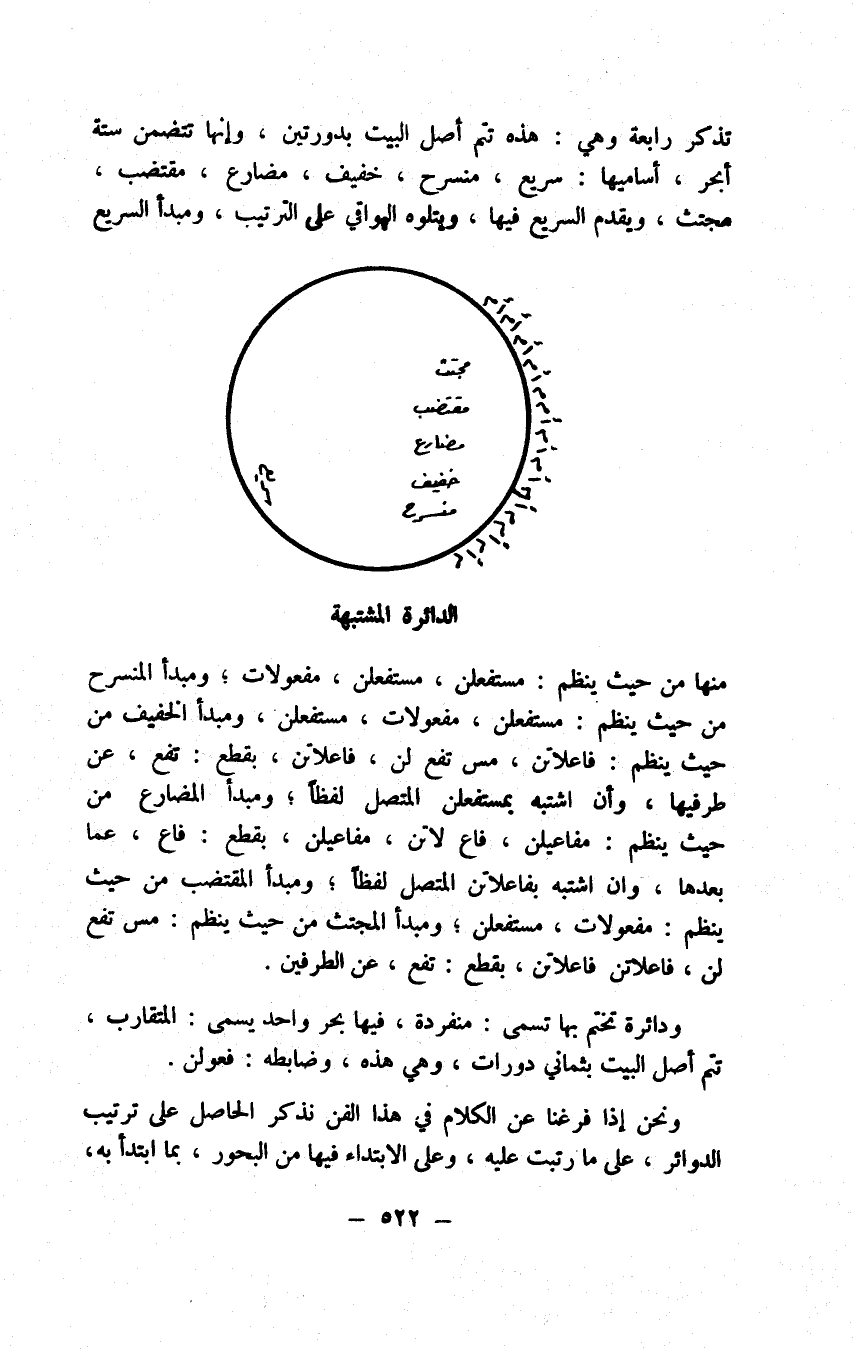 تذكر رابعة وهي : هذه تتم أصل البيت بدورتين ، وإنها تتضمن ستة
أبحر ، أساميها : سريع ، منسرح ، خفيف ، مضارع ، مقتضب ،
مجتث ، ويقدم السريع فيها ، ويتلوه البواقي على الترتيب ، ومبدأ السريع
مجتث
مقتضب
مضارع
خفيف
منسرح
سريع
الدائرة المشتبهة
منها من حيث ينظم : مستفعلن ، مستفعلن ، مفعولات ؛ ومبدأ المنسرح
من حيث ينظم : مستفعلن ، مفعولات ، مستفعلن ، ومبدأ الخفيف من
حيث ينظم : فاعلاتن ، مس تفع لن ، فاعلاتن ، بقطع : تفع ، عن
طرفيها ، وأن اشتبه بمستفعلن المتصل لفظاً ؛ ومبدأ المضارع من
حيث ينظم : مفاعيلن ، فاع لاتن ، مفاعيلن ، بقطع : فاع ، عما
بعدها ، وان اشتبه بفاعلاتن المتصل لفظاً ؛ ومبدأ المقتضب من حيث
ينظم : مفعولات ، مستفعلن ؛ ومبدأ المجتث من حيث ينظم : مس تفع
لن ، فاعلاتن فاعلاتن ، بقطع : تفع ، عن الطرفين .
ودائرة تختم بها تسمى : منفردة ، فيها بحر واحد يسمى : المتقارب ،
تتم أصل البيت بثماني دورات ، وهي هذه ، وضابطه : فعولن .
ونحن إذا فرغنا عن الكلام في هذا الفن نذكر الحاصل على ترتيب
الدوائر ، على ما رتبت عليه ، وعلى الابتداء فيها من البحور ، بما ابتدأ به،
– ٥٢٢ –